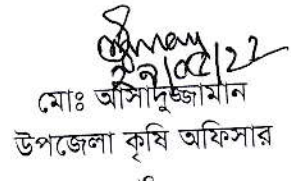 ২৯/০৫/২২
মোঃ আসাদুজ্জামান
উপজেলা কৃষি অফিসার